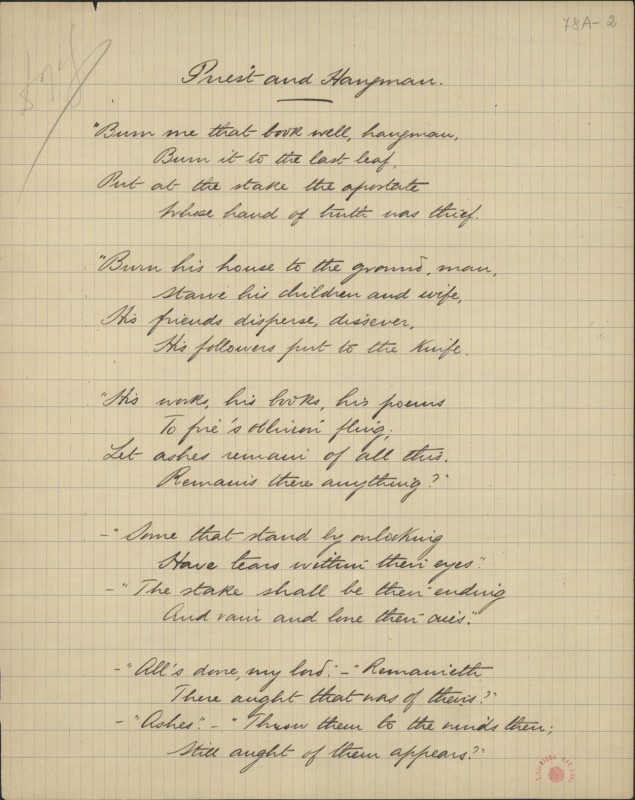 78A-2
Priest and Hangman.
"Burn me that book well, hangman,
Burn it to the last leaf,
Put at the stake the apostate
Whose hand of truth was thief.
"Burn his house to the ground, man,
Starve his children and wife,
His friends disperse, dissever,
His followers put to the knife.
"His works, his books, his poems
To fire's oblivion fling;
Let ashes remain of all this.
Remains there anything?"
– "Some that stand by onlooking
Have tears within their eyes".
– "The stake shall be their ending
And vain and lone their cries."
– "All's done, my lord." – "Remaineth
There aught that was of theirs?"
– "Ashes". – "Throw them to the winds then;
Still aught of them appears?"